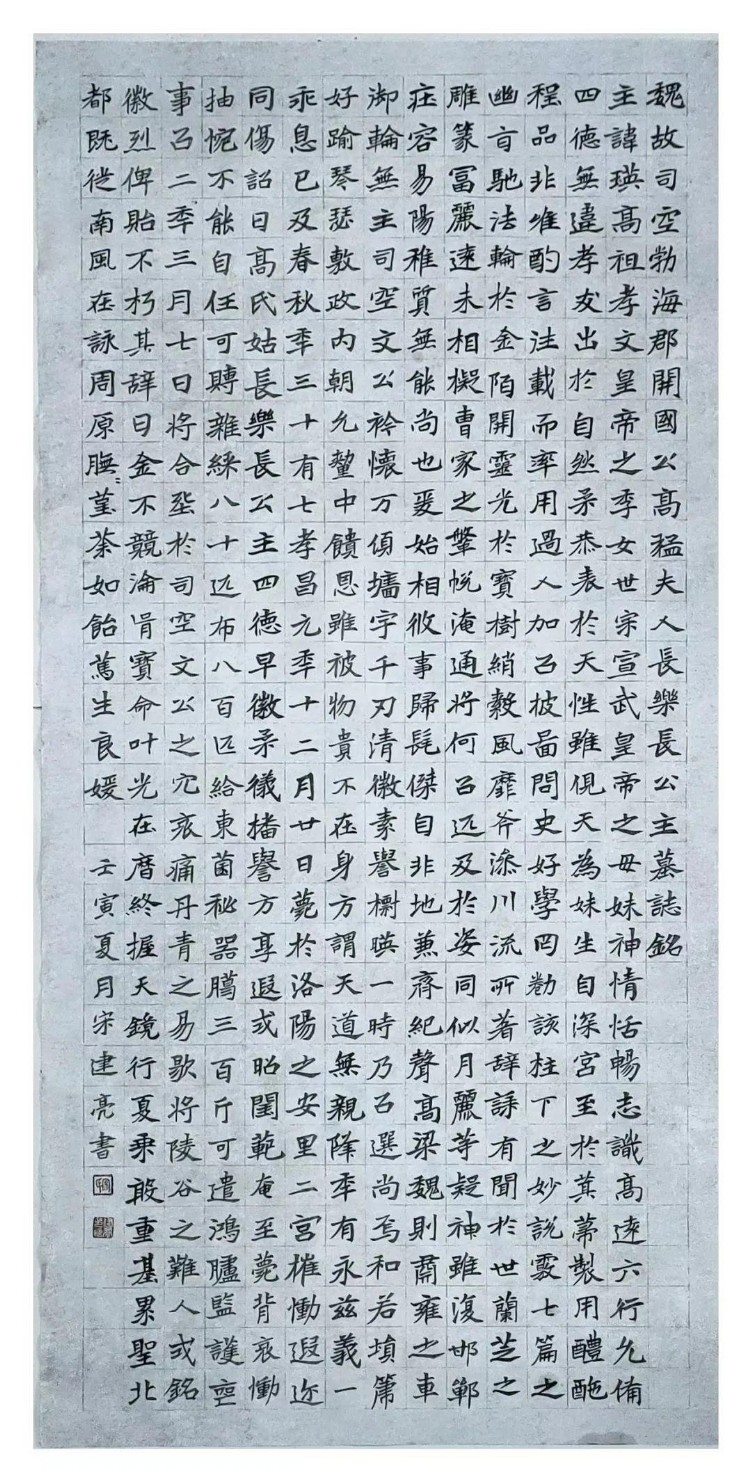 魏故司空勃海郡開國公高猛夫人長樂長公主墓誌銘
主諱瑛高祖孝文皇帝之季女世宗宣武皇帝之母妹神情恬暢志識高遠六行允備
四德無違孝友出於自然柔恭表於天性雖俔天為妹生自深宮至於箕帚製用醴酏
程品非唯酌言注載而率用過人加以披圖問史好學罔勌該柱下之妙說覈七篇之
幽旨馳法輪於金陌開靈光於寶樹綃縠風靡斧添川流所著辞誄有聞於世蘭芝之
雕篆富麗遠未相擬曹家之鞶帨淹通將何以匹及於姿同似月麗等疑神雖復邯鄲
莊容易陽稚質無能尚也爰始相攸事歸髦傑自非地兼齊紀聲高梁魏則肅雍之車
御輪無主司空文公衿懷万傾墻宇千刃清徽素譽標暎一時乃以選尚焉和若塤箎
好踰琴瑟敷政內朝允釐中饋恩雖被物貴不在身方謂天道無親降年有永茲義一
乖息巳及春秋年三十有七孝昌元年十二月廿日薨於洛陽之安里二宮摧慟遐迩
同傷詔曰高氏姑長樂長公主四德早徽柔儀播譽方享遐或昭閨範奄至薨背哀慟
抽惋不能自任可賵雜綵八十匹布八百匹給東園秘器臈三百斤可遣鴻臚監護喪
事以二年三月七日將合葬於司空文公之穴哀痛丹青之易歇將陵谷之難人或銘
徽烈俾貽不朽其辞曰金不競淪胥寶命叶光在曆終握天鏡行夏乘敢重基累聖北
都既徙南風在詠周原膴〻堇荼如飴篤生良媛 壬寅夏月宋建亮書